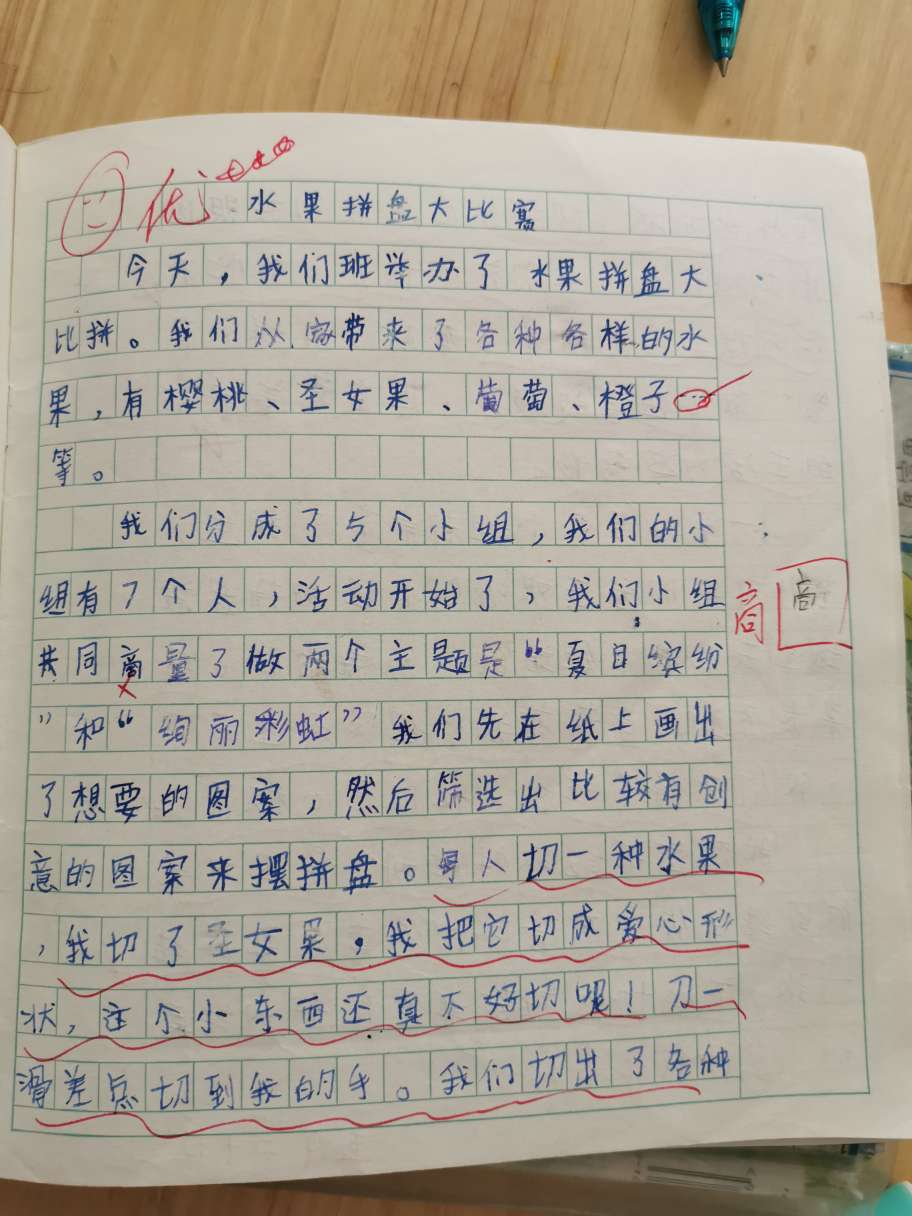 优 水果拼盘大比赛
今天，我们班举办了水果拼盘大
比拼。我们从家带来了各种各样的水
果，有樱桃、圣女果、葡萄、橙子
等。
我们分成了5个小组，我们的小
组有7个人，活动开始了，我们小组
共同商量了做两个主题是“夏日缤纷
”和“绚丽彩虹”我们先在纸上画出
了想要的图案，然后筛选出比较有创
意的图案来摆拼盘。每人切一种水果
，我切了圣女果，我把它切成爱心形
状，这个小东西还真不好切呢！刀一
滑差点切到我的手。我们切出了各种
商 商